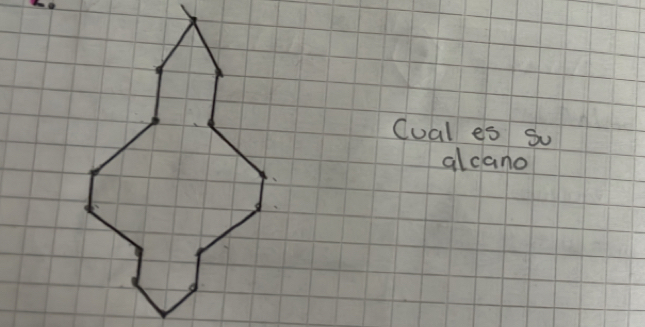 Cual es su
alcano